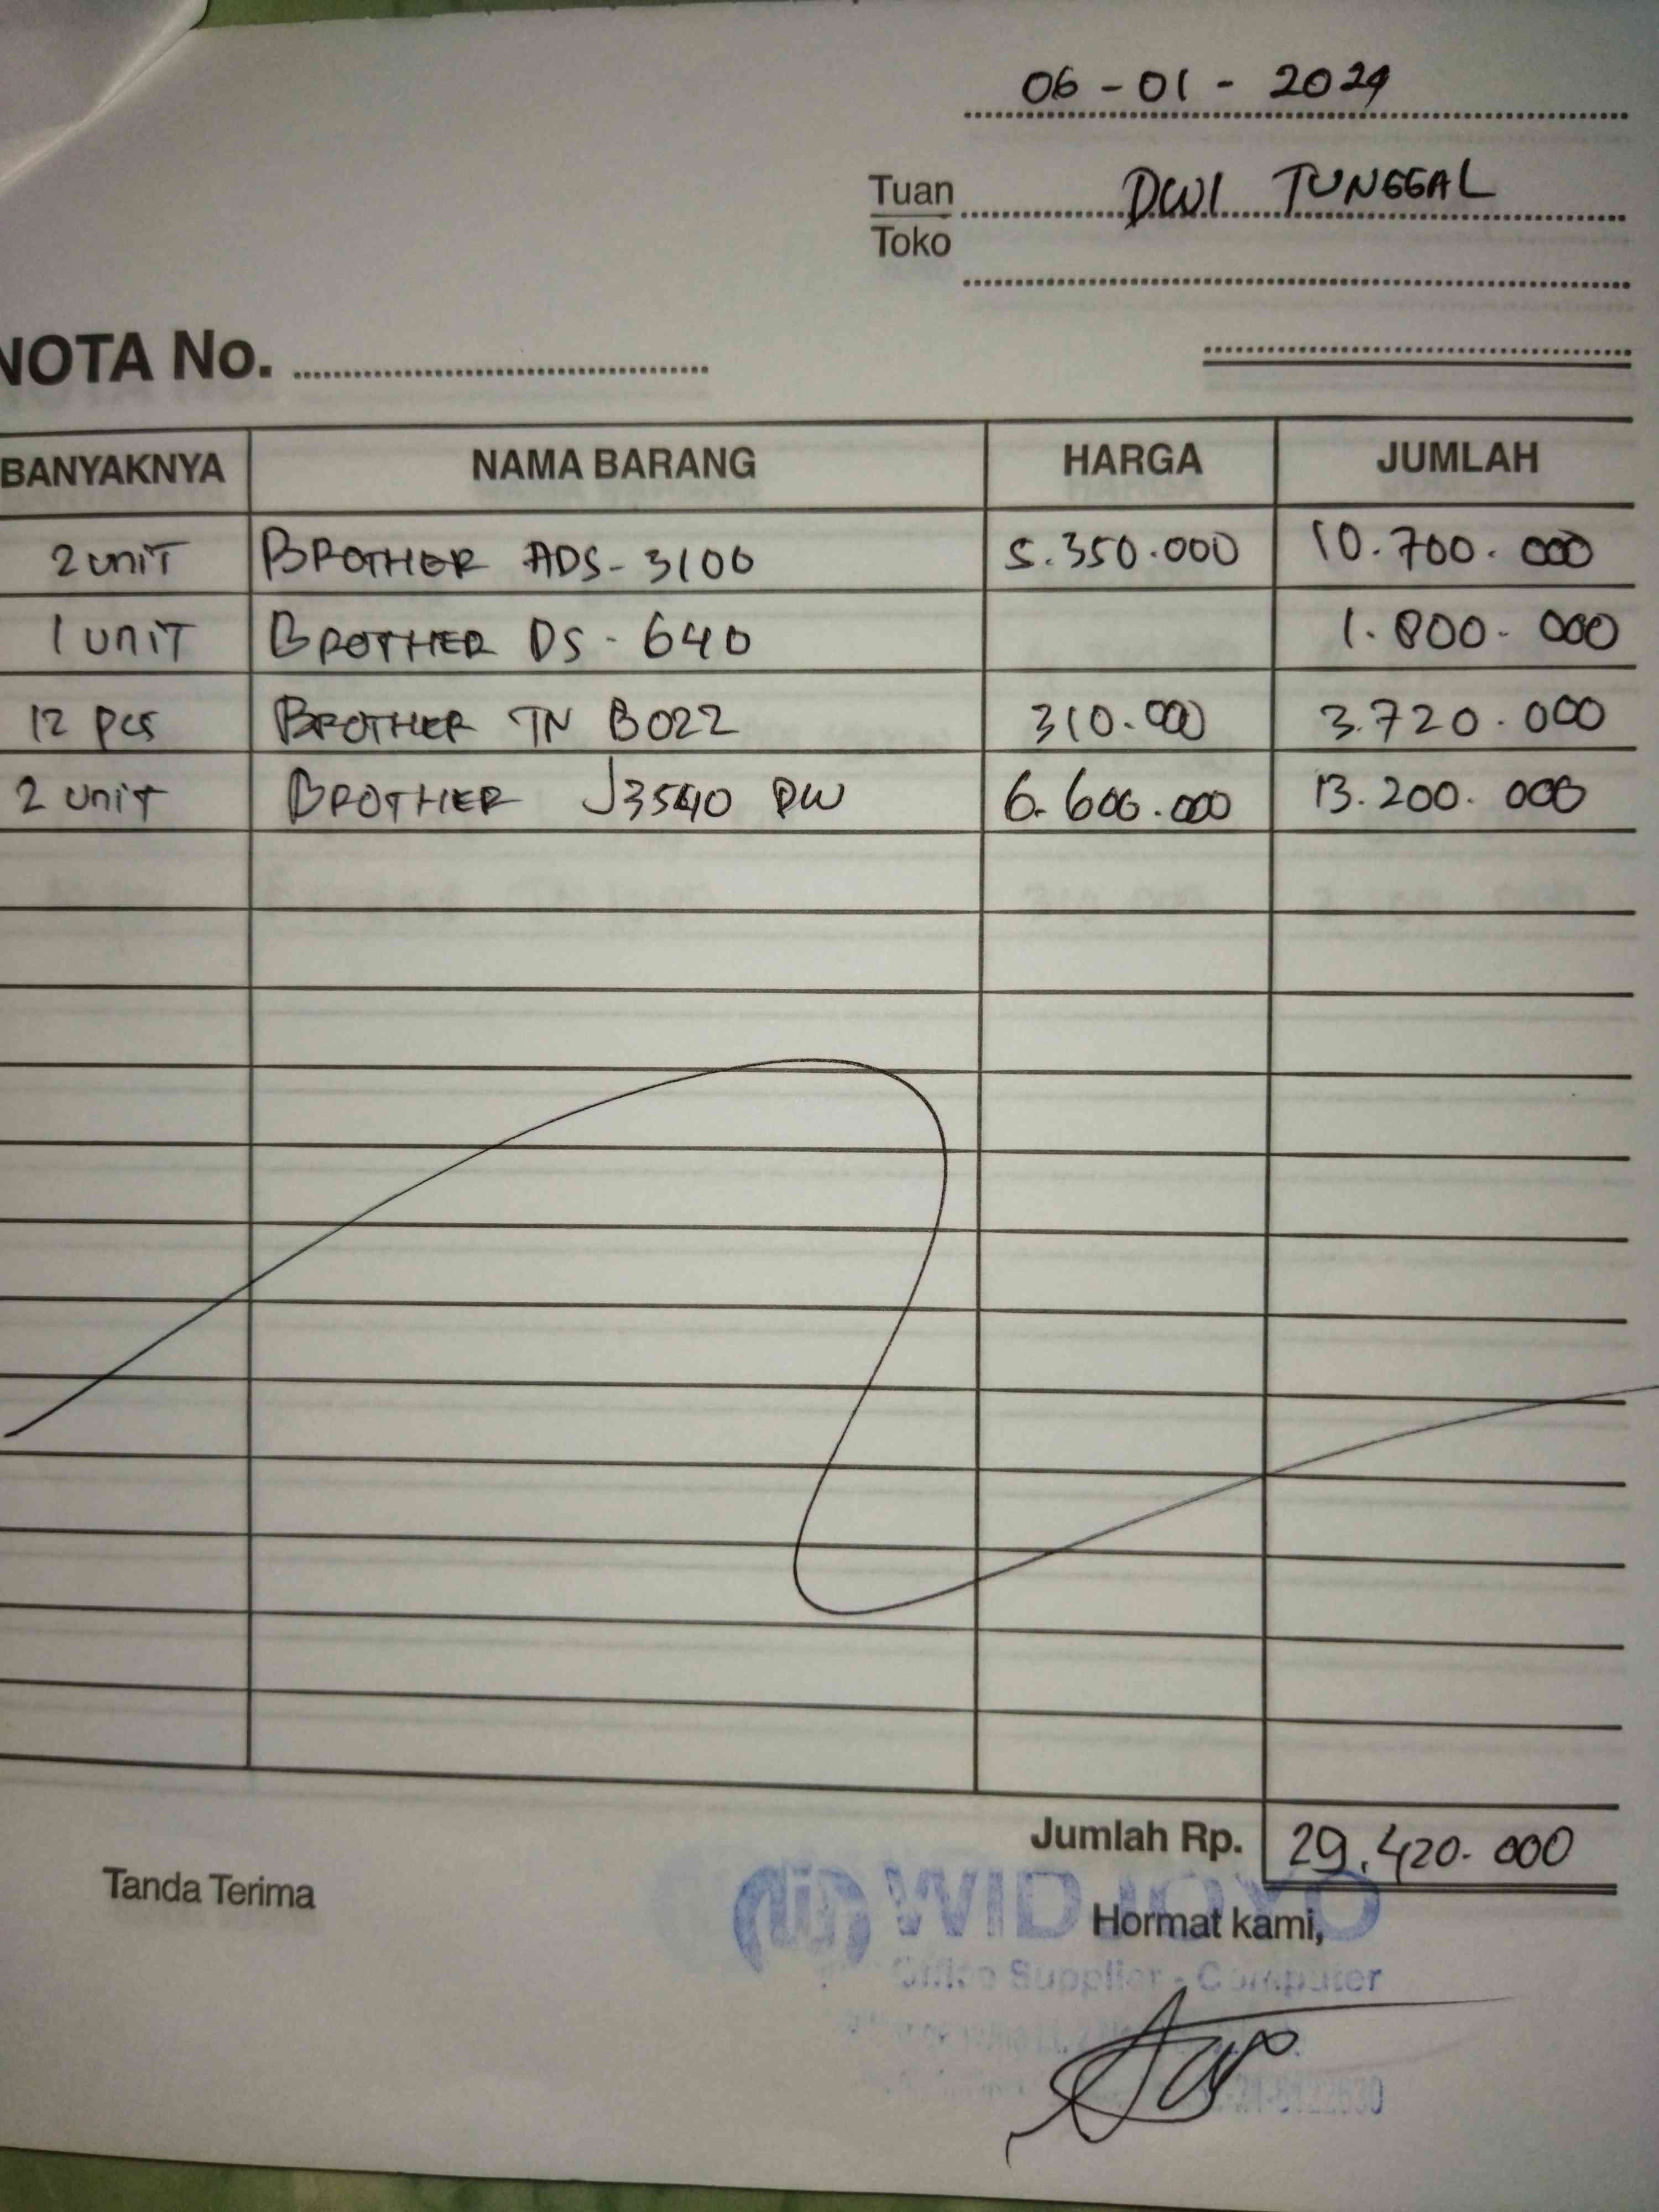 06 - 01 - 2024
Tuan DWI TUNGGAL
Toko
NOTA No.
BANYAKNYA NAMA BARANG HARGA JUMLAH
2 unit BROTHER ADS-3100 5.350.000 10.700.000
1 unit BROTHER DS-640 1.800.000
12 pcs BROTHER TN B022 310.000 3.720.000
2 unit BROTHER J3540 DW 6.600.000 13.200.000
Jumlah Rp. 29.420.000
Tanda Terima Hormat kami,
WIDJOYO
Office Supplier - Computer